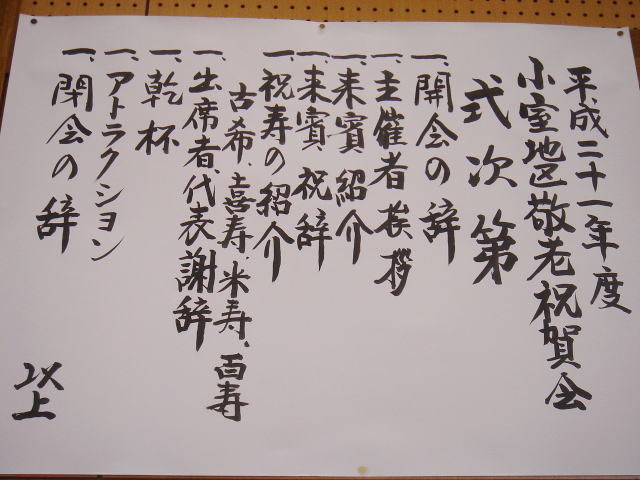 平成二十一年度
小室地区敬老祝賀会
式次第
一、開会の辞
一、主催者挨拶
一、来賓紹介
一、来賓祝辞
一、祝寿の紹介
古希、喜寿、米寿、百寿
一、出席者、代表謝辞
一、乾杯
一、アトラクション
一、閉会の辞
以上